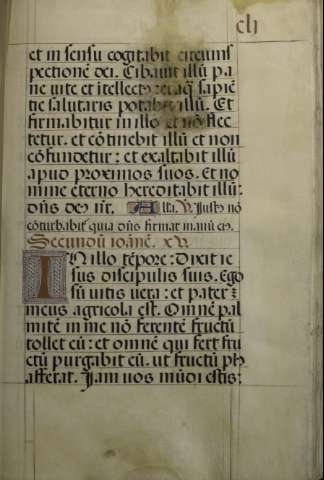 clj
et in sensu cogitabit circums
pectionē dei. Cibauit illū pa
ne uite et itellect⁹: et aq̄ sapiē
tie salutaris potabit illū. Et
firmabitur in illo et nō flec
tetur. et cōtinebit illū et non
cōfundetur: et exaltabit illū
apud proximos suos. Et no
mine eterno hereditabit illū:
dn̄s de⁹ nr̄. Alla. ℣. Just⁹ nō
cōturbabit᷑ quia dn̄s firmat manū ei⁹.
Secundū ioānē. xv.
IN illo tēpore: Dixit ie
sus discipulis suis. Ego
sū uitis uera: et pater
meus agricola est. Omnē pal
mitē in me nō ferentē fructū
tollet eū: et omnē qui fert fru
ctū purgabit eū. ut fructū pl⁹
afferat. Jam uos mūdi estis: